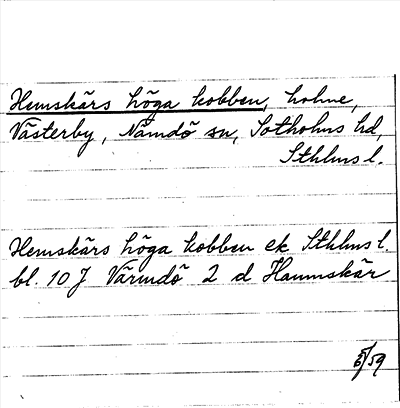 Hemskärs höga kobben, holme,
Västerby, Nämdö sn, Sotholms hd,
Sthlms l.
Hemskärs höga kobben ek Sthlms l.
bl. 10 J Värmdö 2 d Hammskär
5/59